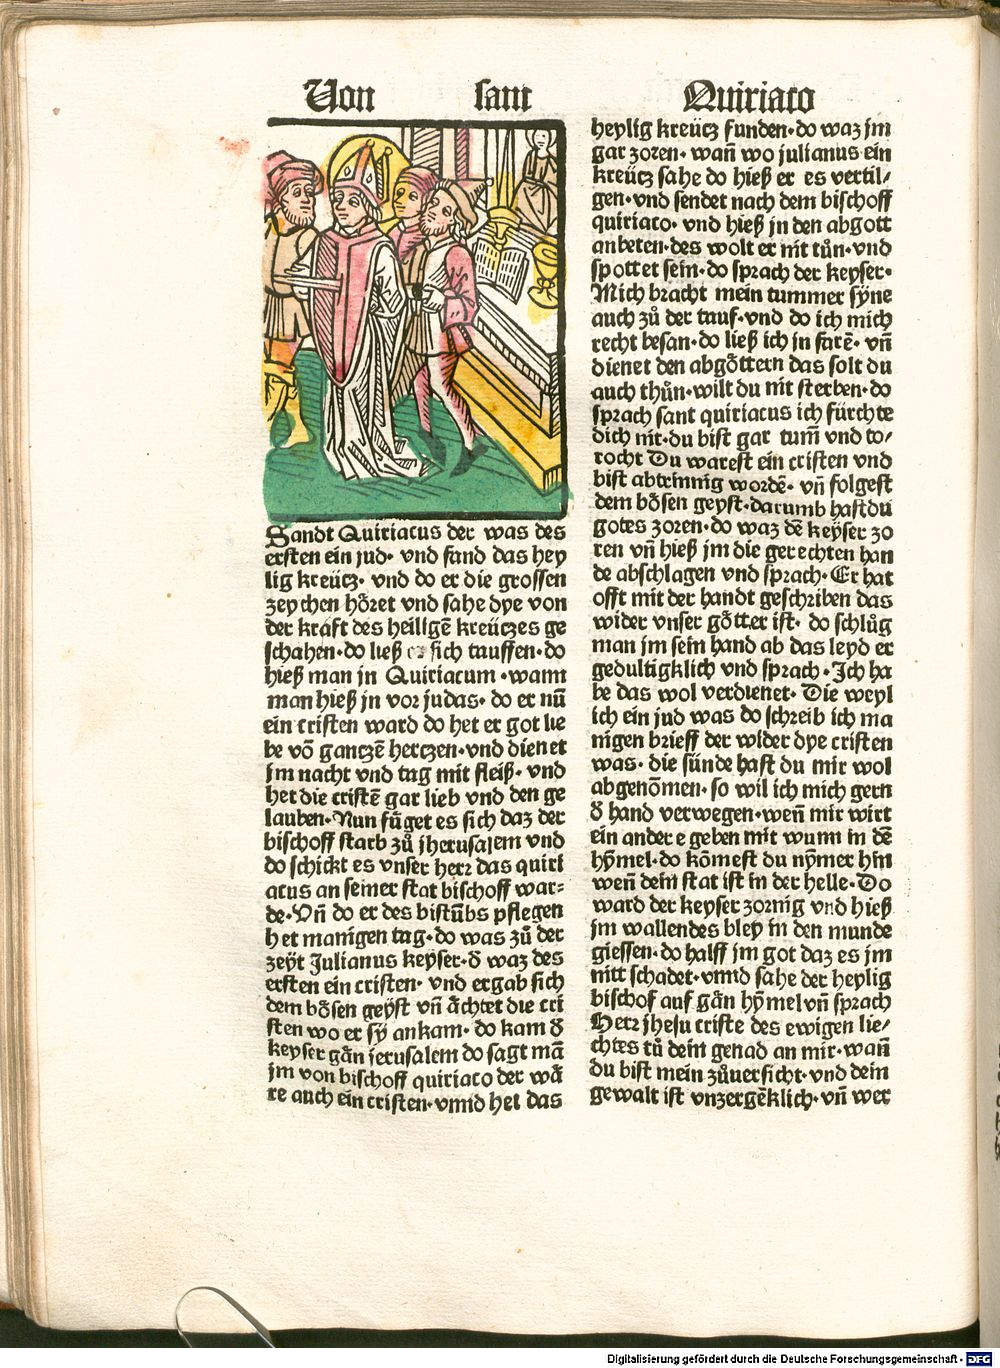 Von sant Quiriaco
Sandt Quiriacus der was des
ersten ein jud· vnd fand das hey
lig kreücz· vnd do er die grossen
zeychen hôret vnd sahe dye von
der kraft des heiligē kreüczes ge
schahen·do ließ er sich tauffen·do
hieß man jn Quiriacum ·wann
man hieß jn vor judas· do er nū
ein cristen ward do het er got lie
be vō ganczē herczen·vnd dienet
jm nacht vnd tag mit fleiß· vnd
het die cristē gar lieb vnd den ge
lauben·Nun fůget es sich daz der
bischoff starb zů jherusalem vnd
do schickt es vnser herr das quiri
acus an seiner stat bischoff war⸗
de·Vn̄ do er des bistūbs pflegen
het manigen tag·do was zů der
zeyt Julianus keyser·d̄ waz des
ersten ein cristen· vnd ergab sich
dem bôsen geyst vn̄ ächtet die cri
sten wo er sy ankam· do kam d̄
keyser gān jerusalem do sagt mā
jm von bischoff quiriaco der wā
re auch ein cristen·vnnd het das
heylig kreücz funden·do waz jm
gar zoren· wan̄ wo julianus ein
kreücz sahe do hieß er es vertil/
gen·vnd sendet nach dem bischoff
quiriaco· vnd hieß jn den abgott
anbeten·des wolt er nit tůn·vnd
spottet sein·do sprach der keyser·
Mich bracht mein tummer syne
auch zů der tauf·vnd do ich mich
recht besan·do ließ ich jn farē· vn̄
dienet den abgôttern das solt du
auch thůn·wilt du nit sterben·do
sprach sant quiriacus ich fürchte
dich nit·du bist gar tum̄ vnd to/
rocht Du warest ein cristen vnd
bist abtrinnig wordē· vn̄ folgest
dem bôsen geyst·darumb hastdu
gotes zoren·do waz dē keyser zo
ren vn̄ hieß jm die gerechten han
de abschlagen vnd sprach·Er hat
offt mit der handt geschriben das
wider vnser gôtter ist· do schlůg
man jm sein hand ab das leyd er
gedultigklich vnd sprach·Ich ha
be das wol verdienet· Die weyl
ich ein jud was do schreib ich ma
nigen brieff der wider dye cristen
was· die sünde hast du mir wol
abgenom̄en· so wil ich mich gern
d̄ hand verwegen·wen̄ mir wirt
ein andere geben mit wunn in dē
hym̄el·do kōmest du nym̄er hin
wen̄ dein stat ist in der helle·Do
ward der keyser zornig vnd hieß
jm wallendes bley in den munde
giessen·do halff jm got daz es jm
nitt schadet·vnnd sahe der heylig
bischof auf gān hym̄el vn̄ sprach
Herr jhesu criste des ewigen lie/
chtes tů dein genad an mir·wan̄
du bist mein zůuersicht·vnd dein
gewalt ist vnzergēklich·vn̄ wer
Digitalisierung gefördert durch die Deutsche Forschungsgemeinschaft - DFG